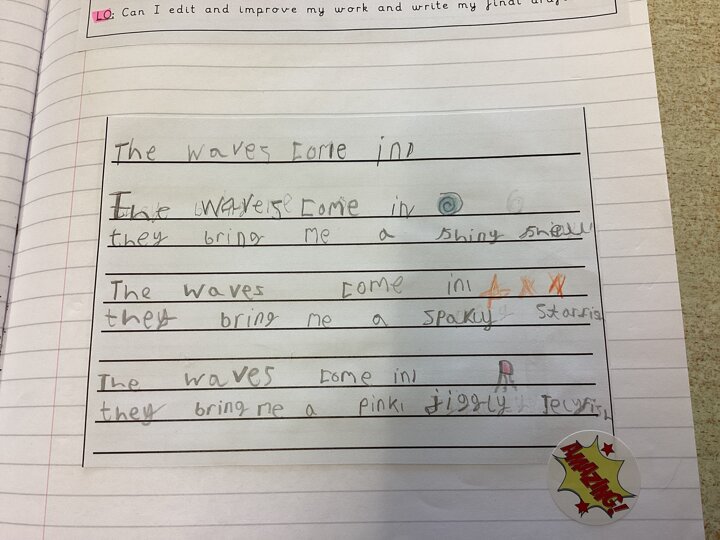 LO: Can I edit and improve my work and write my final draft
The waves come in
The waves come in
they bring me a shiny shell
The waves come in
they bring me a sparky starfis
The waves come in
they bring me a pink jiggly Jelyfish
AMAZING!